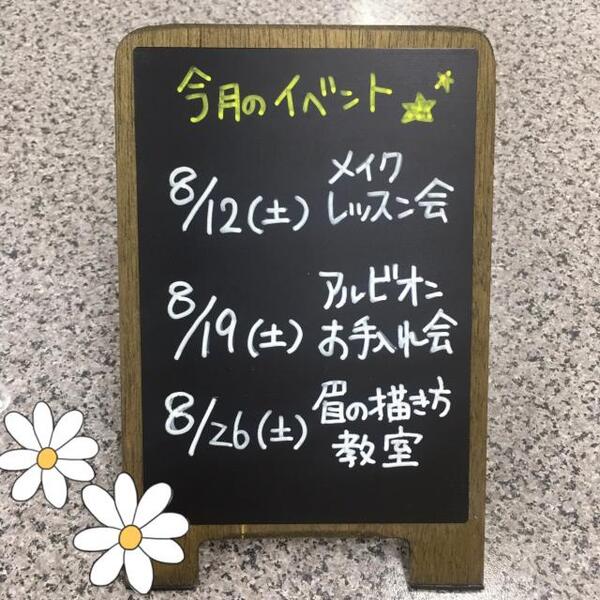 今月のイベント
8/12(土) メイク
レッスン会
8/19(土) アルビオン
お手入れ会
8/26(土) 眉の描き方
教室